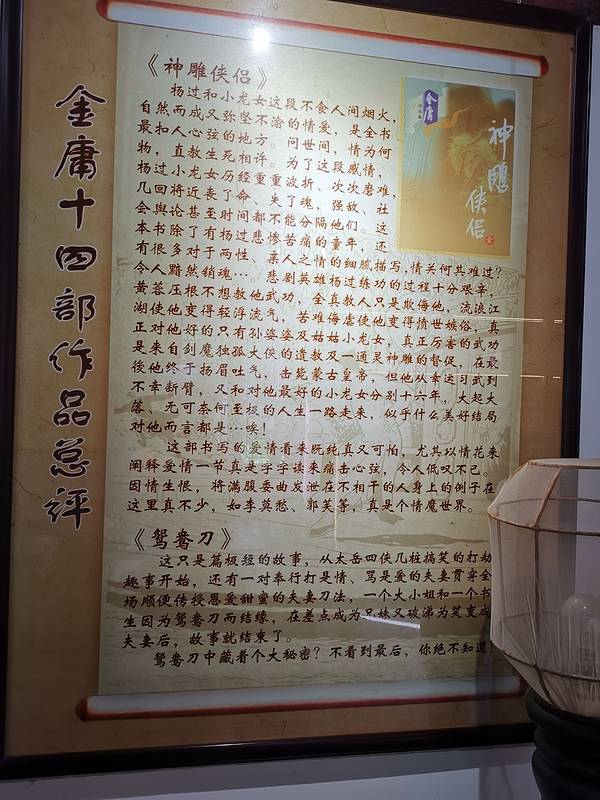 金庸十四部作品总评
《神雕侠侣》
杨过和小龙女这段不食人间烟火，
自然而成又弥坚不渝的情爱，是全书
最扣人心弦的地方。问世间，情为何
物，直教生死相许。为了这段感情，
杨过小龙女历经重重波折、次次磨难，
几回将近丧了命、失了魂，强敌、社
会舆论甚至时间都不能分隔他们。这
本书除了有杨过悲惨苦痛的童年，还
有很多对于两性、亲人之情的细腻描写，情关何其难过？
令人黯然销魂…。悲剧英雄杨过练功的过程十分艰辛，
黄蓉压根不想教他武功，全真教人只是欺侮他，流浪江
湖使他变得轻浮流气，苦难侮虐使他变得愤世嫉俗，真
正对他好的只有孙婆婆及姑姑小龙女，真正厉害的武功
是来自剑魔独孤大侠的遗教及一通灵神雕的督促，在最
後他终于扬眉吐气，击毙蒙古皇帝，但他从幸运习武到
不幸断臂，又和对他最好的小龙女分别十六年，大起大
落、无可奈何至极的人生一路走来，似乎什么美好结局
对他而言都是…唉！
这部书写的爱情看来既纯真又可怕，尤其以情花来
阐释爱情一节真是字字读来痛击心弦，令人低叹不已。
因情生恨，将满腹委曲发泄在不相干的人身上的例子在
这里真不少，如李莫愁、郭芙等，真是个情魔世界。
《鸳鸯刀》
这只是篇极短的故事，从太岳四侠几桩搞笑的打劫
趣事开始，还有一对奉行打是情、骂是爱的夫妻贯穿全
场顺便传授恩爱甜蜜的夫妻刀法，一个大小姐和一个书
生因为鸳鸯刀而结缘，在差点成为兄妹又破涕为笑变成
夫妻后，故事就结束了。
鸳鸯刀中藏着个大秘密？不看到最后，你绝不知道！
金庸
神雕
侠侣